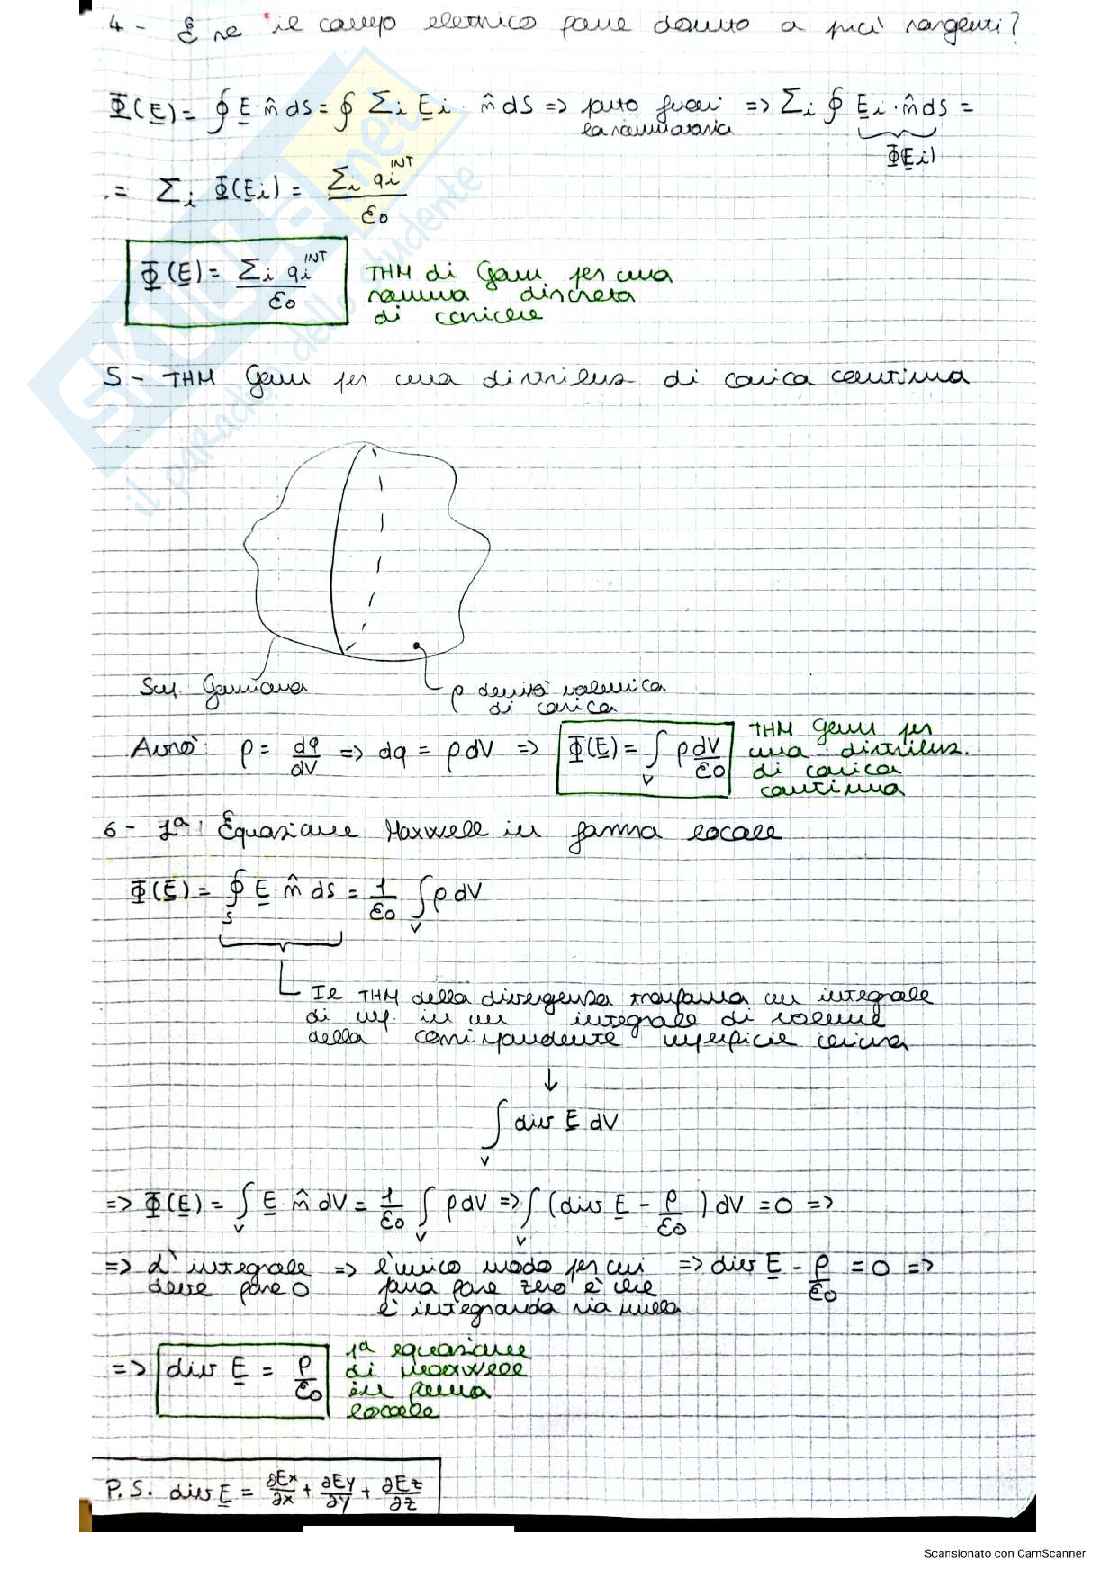 4 - E se il campo elettrico fosse dovuto a più sorgenti?
Φ(E) = ∮ E n̂ dS = ∮ Σi Ei · n̂ dS => porto fuori la sommatoria => Σi ∮ Ei · n̂ dS =
Φ(Ei)
= Σi Φ(Ei) = Σi qi^INT / ε0
Φ(E) = Σi qi^INT / ε0
THM di Gauss per una
somma discreta
di cariche
5 - THM Gauss per una distribuz di carica continua
Sup. Gaussiana
ρ densità volumica
di carica
Avrò: ρ = dq/dV => dq = ρ dV => Φ(E) = ∫V ρ dV/ε0
THM Gauss per
una distribuz.
di carica
continua
6 - 1ª Equazione Maxwell in forma locale
Φ(E) = ∮S E n̂ ds = 1/ε0 ∫V ρ dV
Il THM della divergenza trasforma un integrale
di sup. in un integrale di volume
della corrispondente superficie chiusa
↓
∫V div E dV
=> Φ(E) = ∫V E n̂ dV = 1/ε0 ∫V ρ dV => ∫V (div E - ρ/ε0) dV = 0 =>
=> L'integrale deve fare 0 => l'unico modo per cui possa fare zero è che l'integranda sia nulla => div E - ρ/ε0 = 0 =>
=> div E = ρ/ε0
1ª equazione
di maxwell
in forma
locale
P.S. div E = ∂Ex/∂x + ∂Ey/∂y + ∂Ez/∂z
SKUOLA.net
il paradiso dello studente
Scansionato con CamScanner